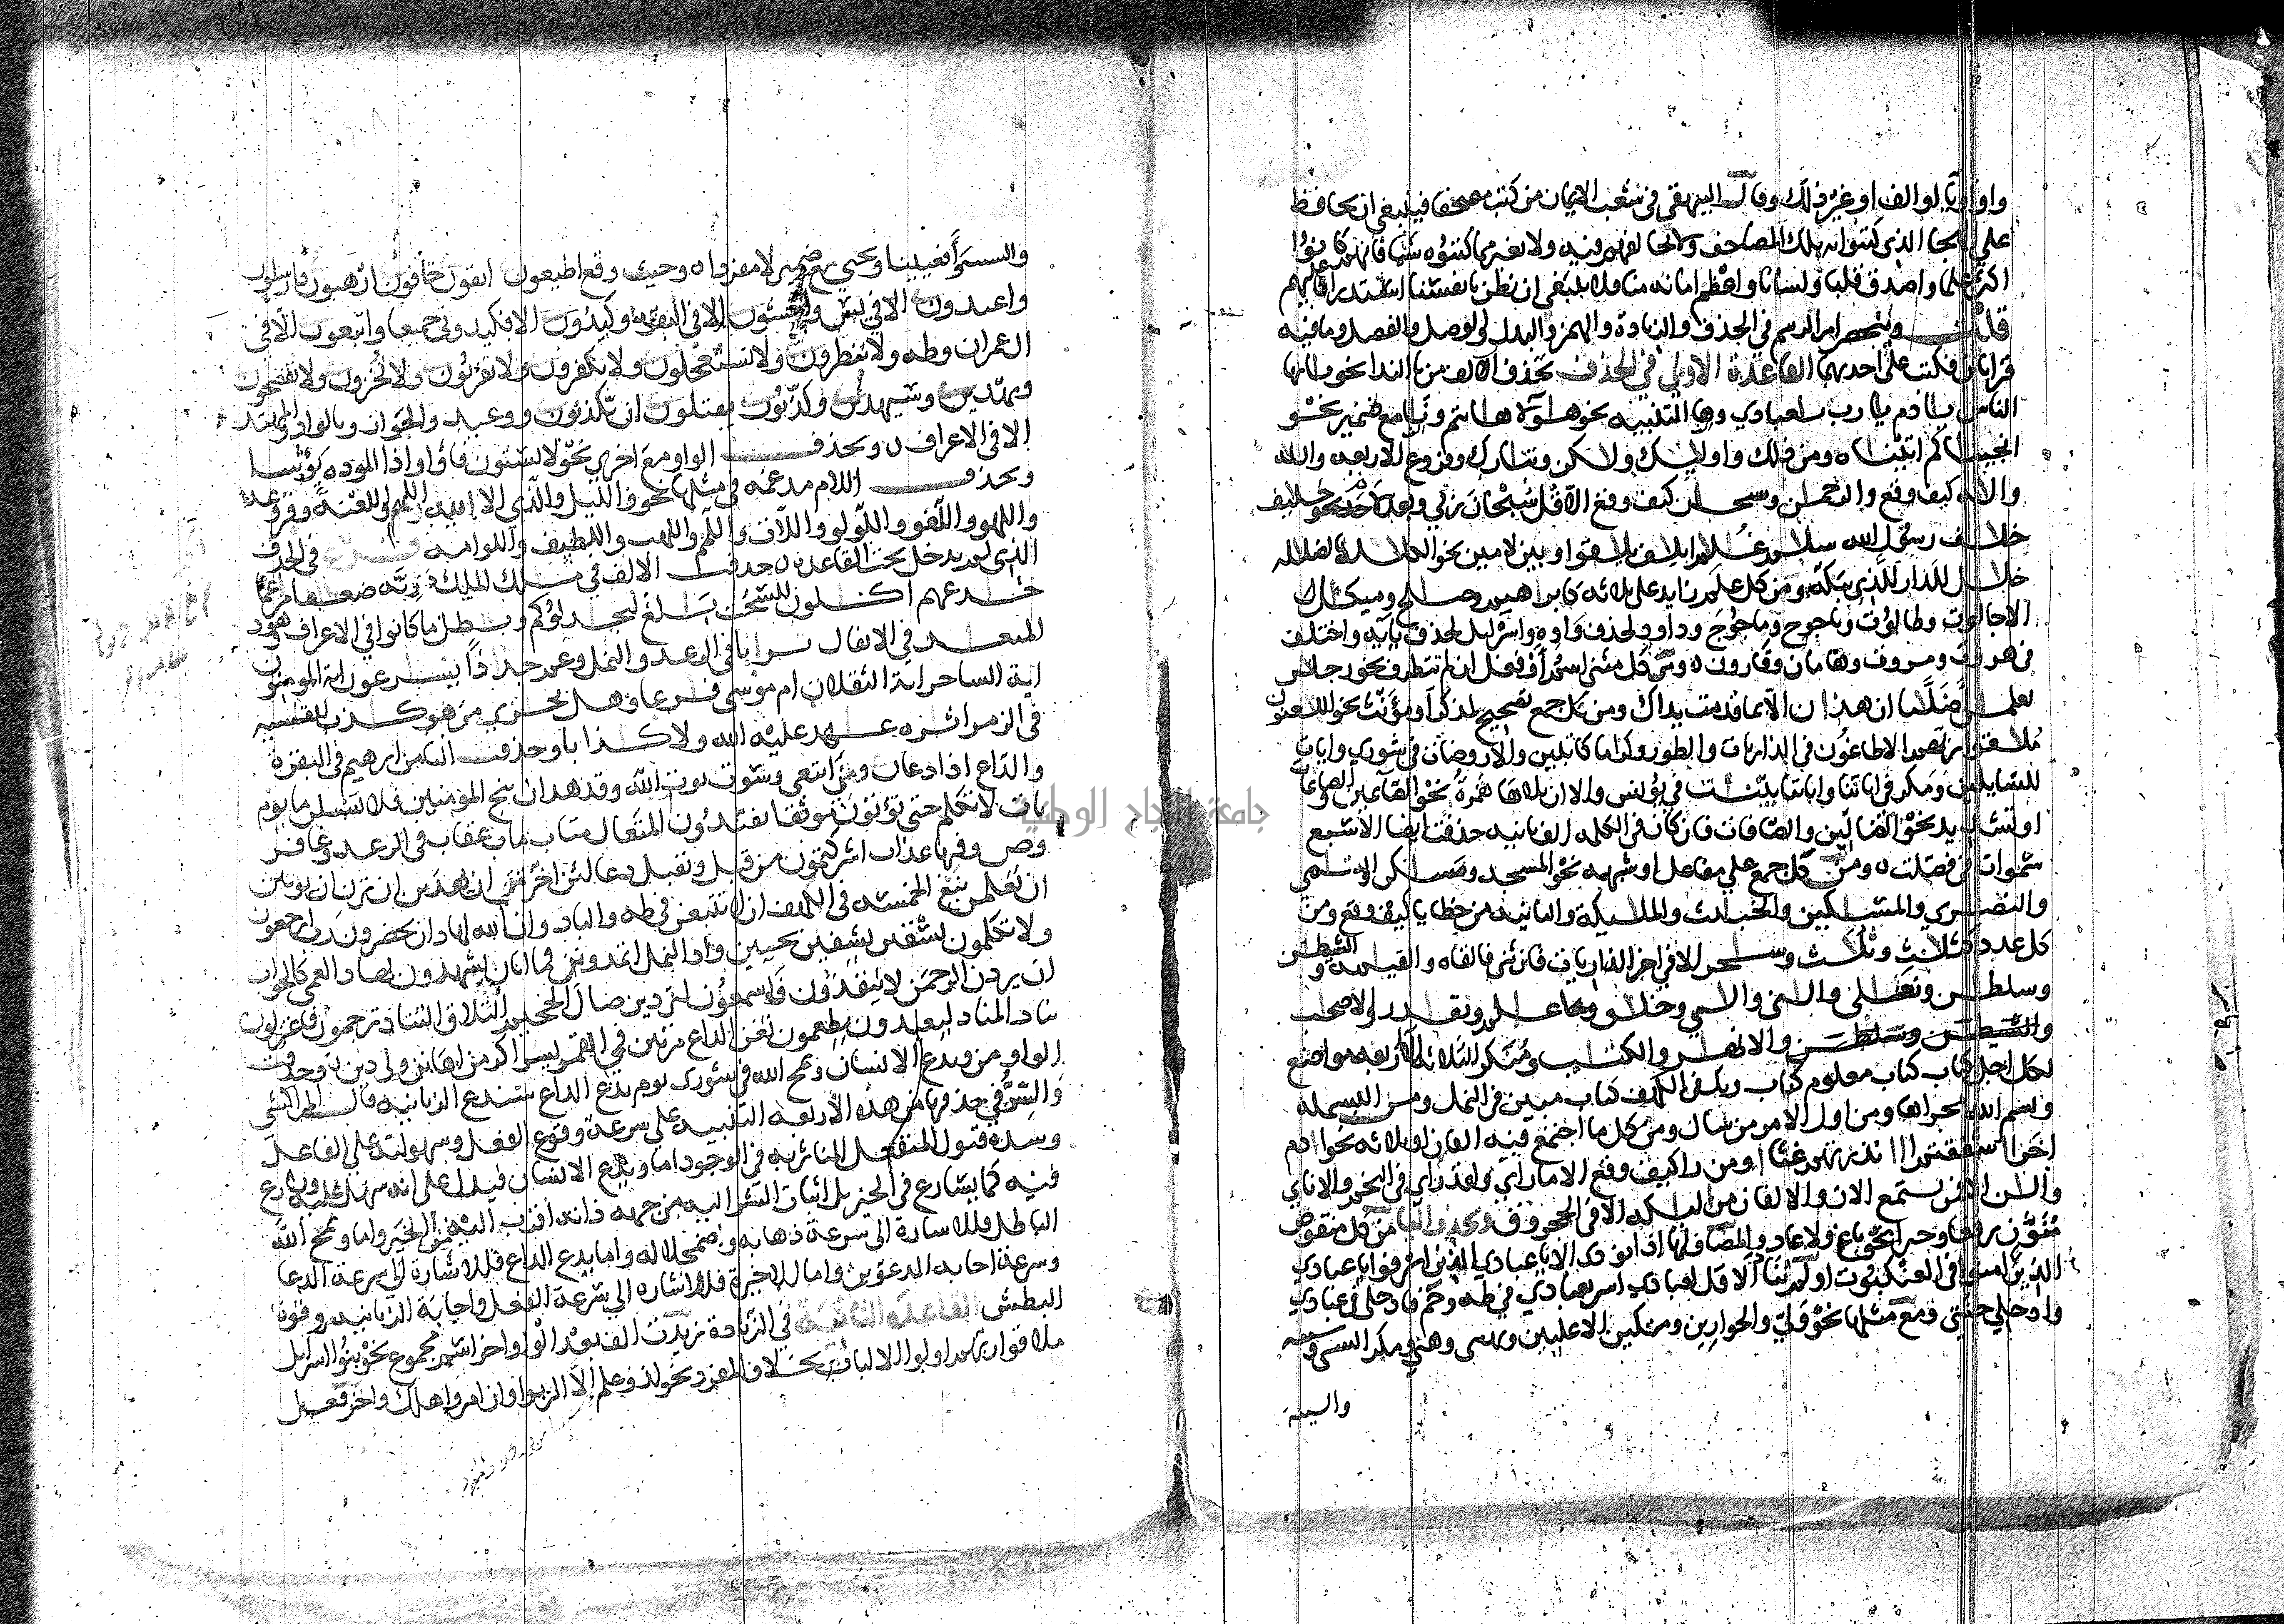 واو او يا او الف او غير ذلك وقال البيهقي في شعب الايمان من كتب مصحفا فينبغي ان يحافظ
علي الهجا الذي كتبوا به تلك المصاحف ولا يخالفهم فيه ولا يغير مما كتبوه شيا فانهم كانوا
اكثر علما واصدق قلبا ولسانا واعظم امانه منا فلا ينبغي ان نظن بانفسنا استدراكا عليهم
قلت وينحصر امر الرسم في الحذف والزيادة والهمز والبدل والوصل والفصل وما فيه
قراتان فكتب علي احديهما القاعدة الاولي في الحذف تحذف الالف من يا الندا نحو يايها
الناس يادم يارب يعبادي وها التنبيه نحو هولا هانتم ونا مع ضمير نحو
انجيناكم اتيناه ومن ذلك واوليك ولكن وتبارك وفروع الاربعه والله
والاله كيف وقع والرحمن وسبحن كيف وقع الا قل سبحان ربي وبعد لام نحو خليف
خلف رسول الله سلم غلم ايلف يلقوا وبين لامين نحو الكلله الضلله
خلل للدار للذي ببكة ومن كل علم زايد علي ثلاثه كابرهيم وصلح وميكيل
الا جالوت وطالوت وياجوج وماجوج وداوود لحذف واوه واسرايل لحذف يايه واختلف
في هروت ومروت وهامان وقارون ومن كل مثني اسم او فعل ان لم تتطرف نحو رجلن
يعلمن اضلنا ان هذان الا بما قدمت يداك ومن كل جمع تصحيح لمذكر او مؤنث نحو اللعنون
ملقوا ربهم الا طاغون في الذاريات والطور وكراما كاتبين والا روضات في شوري وايات
للسايلين ومكر في اياتنا واياتنا بينت في يونس والا ان تلاها همزة نحو الصايمين والصايمات
او تشديد نحو الضالين والصافات فان كان في الكلمه الف ثانيه حذفت ايضا الا سبع
سموات في فصلت ومن كل جمع علي مفاعل او شبهه نحو المسجد ومسكن واليتمي
والنصري والمسكين والخبيث والمليكة والثانيه من خطايا كيف وقع ومن
كل عدد كثلث وثلث وسحر الا في اخر الذاريات فان ثني فالفاه والقيمه والشيطن
وسلطن وتعلي والتي والسي وخلق وعلم وبقدر والاصحب
والشيطن وسلطن والانهر والكتب ومنكر الثلاثه الا اربعه مواضع
لكل اجل كتاب كتاب معلوم كتاب ربك في الكهف كتاب مبين في النمل ومن البسمله
وبسم الله مجراها ومن اول الامر من سال ومن كل ما اجتمع فيه الفان او ثلاثه نحو ادم
اخر اشفقتم اانذرتهم غثا ومن راكيف وقع الا ما راي ولقد راي في النجم والا ناي
والن الا فمن يستمع الان والالفان من اليكه الا في الحجر وق وتحذف اليا من كل منقوص
منون رفعا وجرا نحو باغ ولا عاد والمضاف لها اذا نودي الا يا عبادي الذين اسرفوا يا عبادي
الذين امنوا في العنكبوت او لم يناد الا قل لعبادي اسر بعبادي في طه وحم فادخلي في عبادي
وادخلي جنتي ومع مثلها نحو ولي والحوارين ومتكين الا عليين ويهيي وهيي ومكر السيي وسيه
والسيه
والسيه افعيينا ويحيي مع ضمير لا مفردا وحيث وقع اطيعون اتقون خافون ارهبون فارسلون
واعبدون الا في يس واخشون الا في البقرة وكيدون الا فكيدوني جميعا واتبعون الا في
ال عمران وطه ولا تنظرون ولا تستعجلون ولا تكفرون ولا تقربون ولا تخزون ولا تفضحون
ويهدين وسيهدين وكذبون يقتلون ان يكذبون ووعيد والجوار وبالواد والمهتد
الا في الاعراف وتحذف الواو مع اخري نحو لا يستون فاوا واذا الموده يؤسا
وتحذف اللام مدغمه في مثلها نحو الليل والذي الا الله اللهم واللعنة وفروعه
واللهو واللغو واللولو واللات واللمم واللهب واللطيف واللوامه فرع في الحذف
الذي لم يدخل تحت القاعده حذفت الالف في ملك الملك ذريه ضعفا مراغما
خدعهم اكلون للسحت بلغ ليجدلوكم وبطل ما كانوا في الاعراف وهود
الميعد في الانفال تربا في الرعد والنمل وعم جذذا يسرعون ايه المومنون
ايه الساحر ايه الثقلان ام موسي فرغا وهل يجزي من هو كذب للقسيه
في الزمر اثره عهد عليه الله ولا كذبا وحذفت اليا من ابرهيم في البقرة
والداع اذا دعان ومن اتبعن وسوف يوت الله وقد هدان ننج المومنين فلا تسلن ما يوم
يات لا تكلم حتي تؤتون موثقا تفندون المتعال متاب ماب عقاب في الرعد وغافر
وص وفيها عذاب اشركتمون من قبل وتقبل دعا لئن اخرتن ان يهدين ان ترن ان يوتين
ان تعلمن نبغ الخمسه في الكهف ان لا تتبعن في طه والباد وان الله لهاد ان يحضرون رب ارجعون
ولا تكلمون يسقين يشفين يحيين واد النمل اتمدونن فما اتان يشهدون بهاد العمي كالجواب
ان يردن الرحمن لا ينقذون فاسمعون لتردين صال الجحيم التلاق التناد ترجمون فاعتزلون
يناد المناد ليعبدون يطعمون تغن الداع مرتين في القمر يسر اكرمن اهانن ولي دين وحذفت
الواو من ويدع الانسان ويمح الله في شوري يوم يدع الداع سندع الزبانيه قال المراكشي
والسر في حذفها من هذه الاربعه التنبيه علي سرعة وقوع الفعل وسهولته علي الفاعل
وشده قبول المنفعل المتاثر به في الوجود اما ويدع الانسان فيدل علي انه سهل عليه ويسارع
فيه كما يسارع في الخير بل اثبات الشر اليه من جهه ذاته اقرب اليه من الخير واما ويمح الله
الباطل فللاشارة الي سرعة ذهابه واضمحلاله واما يدع الداع فللاشارة الي سرعة الدعا
وسرعة اجابه المدعوين واما الاخيرة فللاشاره الي سرعة الفعل واجابة الزبانيه وقوة
البطش القاعدة الثانية في الزيادة زيدت الف بعد الواو اخر اسم مجموع نحو بنوا اسرايل
ملاقوا ربهم اولوا الالباب بخلاف المفرد نحو لذو علم الا الربوا وان امروا هلك واخر فعل